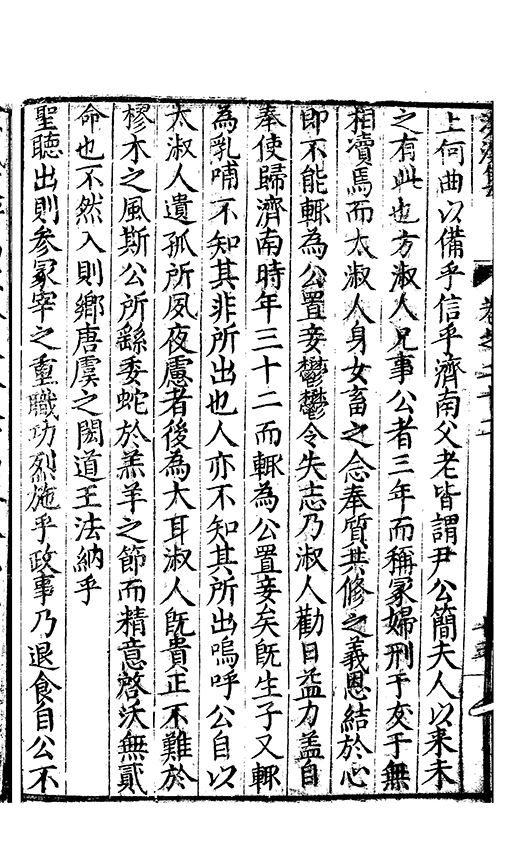 上何曲以備乎信乎濟南父老皆謂尹公簡夫人以来未
之有此也方淑人兄事公者三年而稱冢婦刑于友于無
相凟焉而太淑人身女畜之念奉質共修之義恩結於心
即不能輒為公置妾鬱鬱令失志乃淑人勸日益力盖自
奉使歸濟南時年三十二而輒為公置妾矣既生子又輒
為乳哺不知其非所出也人亦不知其所出嗚呼公自以
太淑人遺孤所夙夜慮者後為大耳淑人既貴正不難於
樛木之風斯公所繇委蛇於羔羊之節而精意啓沃無貳
命也不然入則鄉唐虞之閎道王法納乎
聖聽出則参冢宰之重職功烈施乎政事乃退食自公不